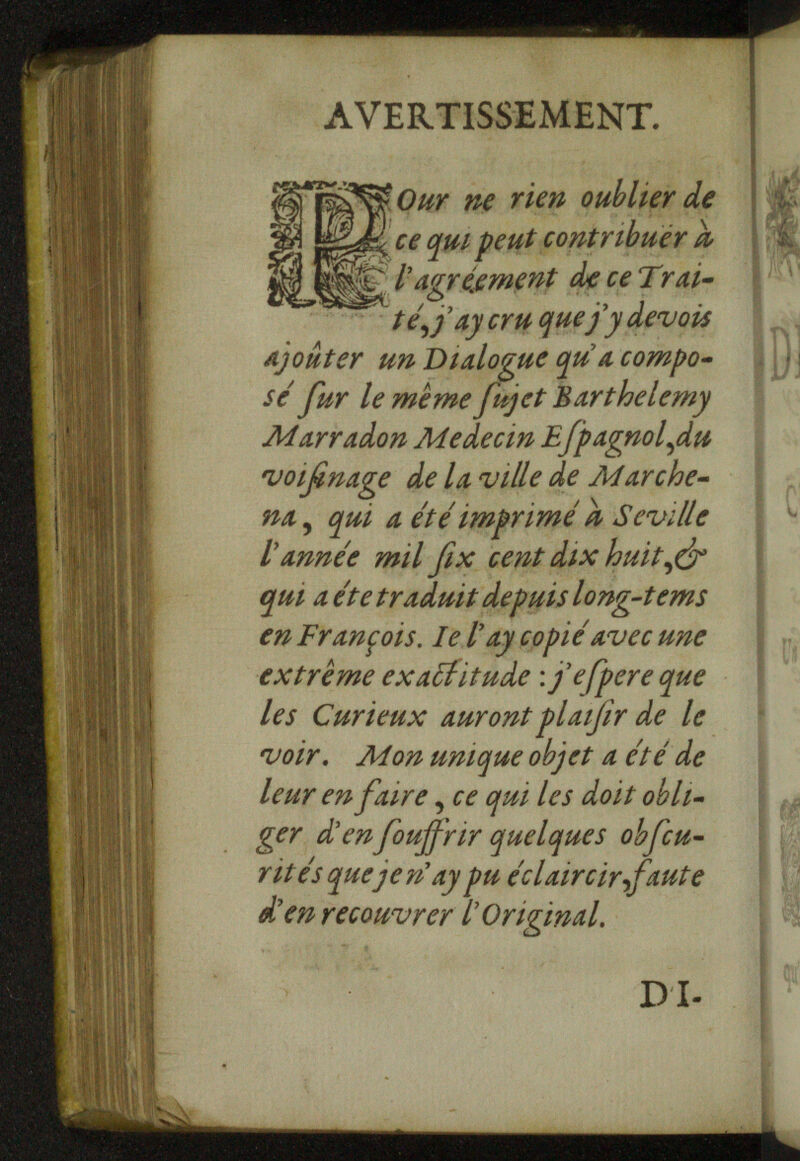 AVERTISSEMENT.
POur ne rien oublier de
ce qui peut contribuër à
l'agréement de ce Trai-
té, j'ay cru que j'y devois
ajoûter un Dialogue qu'a compo-
sé ſur le même ſujet Barthelemy
Marradon Medecin Eſpagnol, du
voiſinage de la ville de Marche-
na, qui a été imprimé à Seville
l'année mil ſix cent dix huit, &
qui a éte traduit depuis long-tems
en François. Ie l'ay copié avec une
extrême exactitude : j'eſpere que
les Curieux auront plaiſir de le
voir. Mon unique objet a été de
leur en faire, ce qui les doit obli-
ger d'en ſouffrir quelques obſcu-
rités que je n'ay pu éclaircir, faute
d'en recouvrer l'Original.
DI-